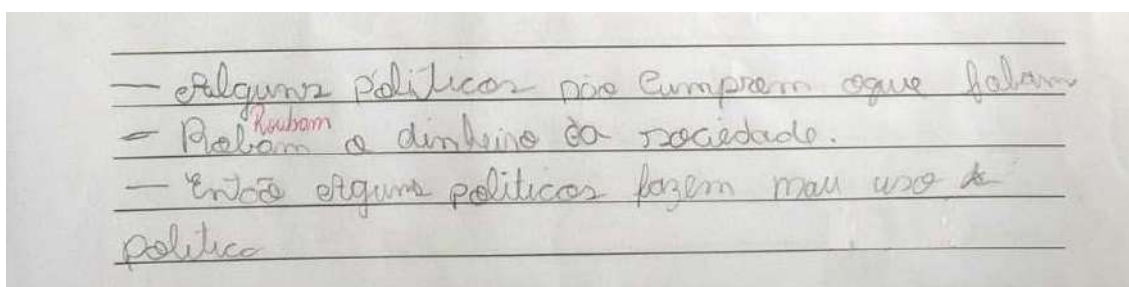 — Alguns políticos não cumprem oque falam
Roubam
— Robam o dinheiro da sociedade.
— Então alguns politicos fazem mau uso da
politica